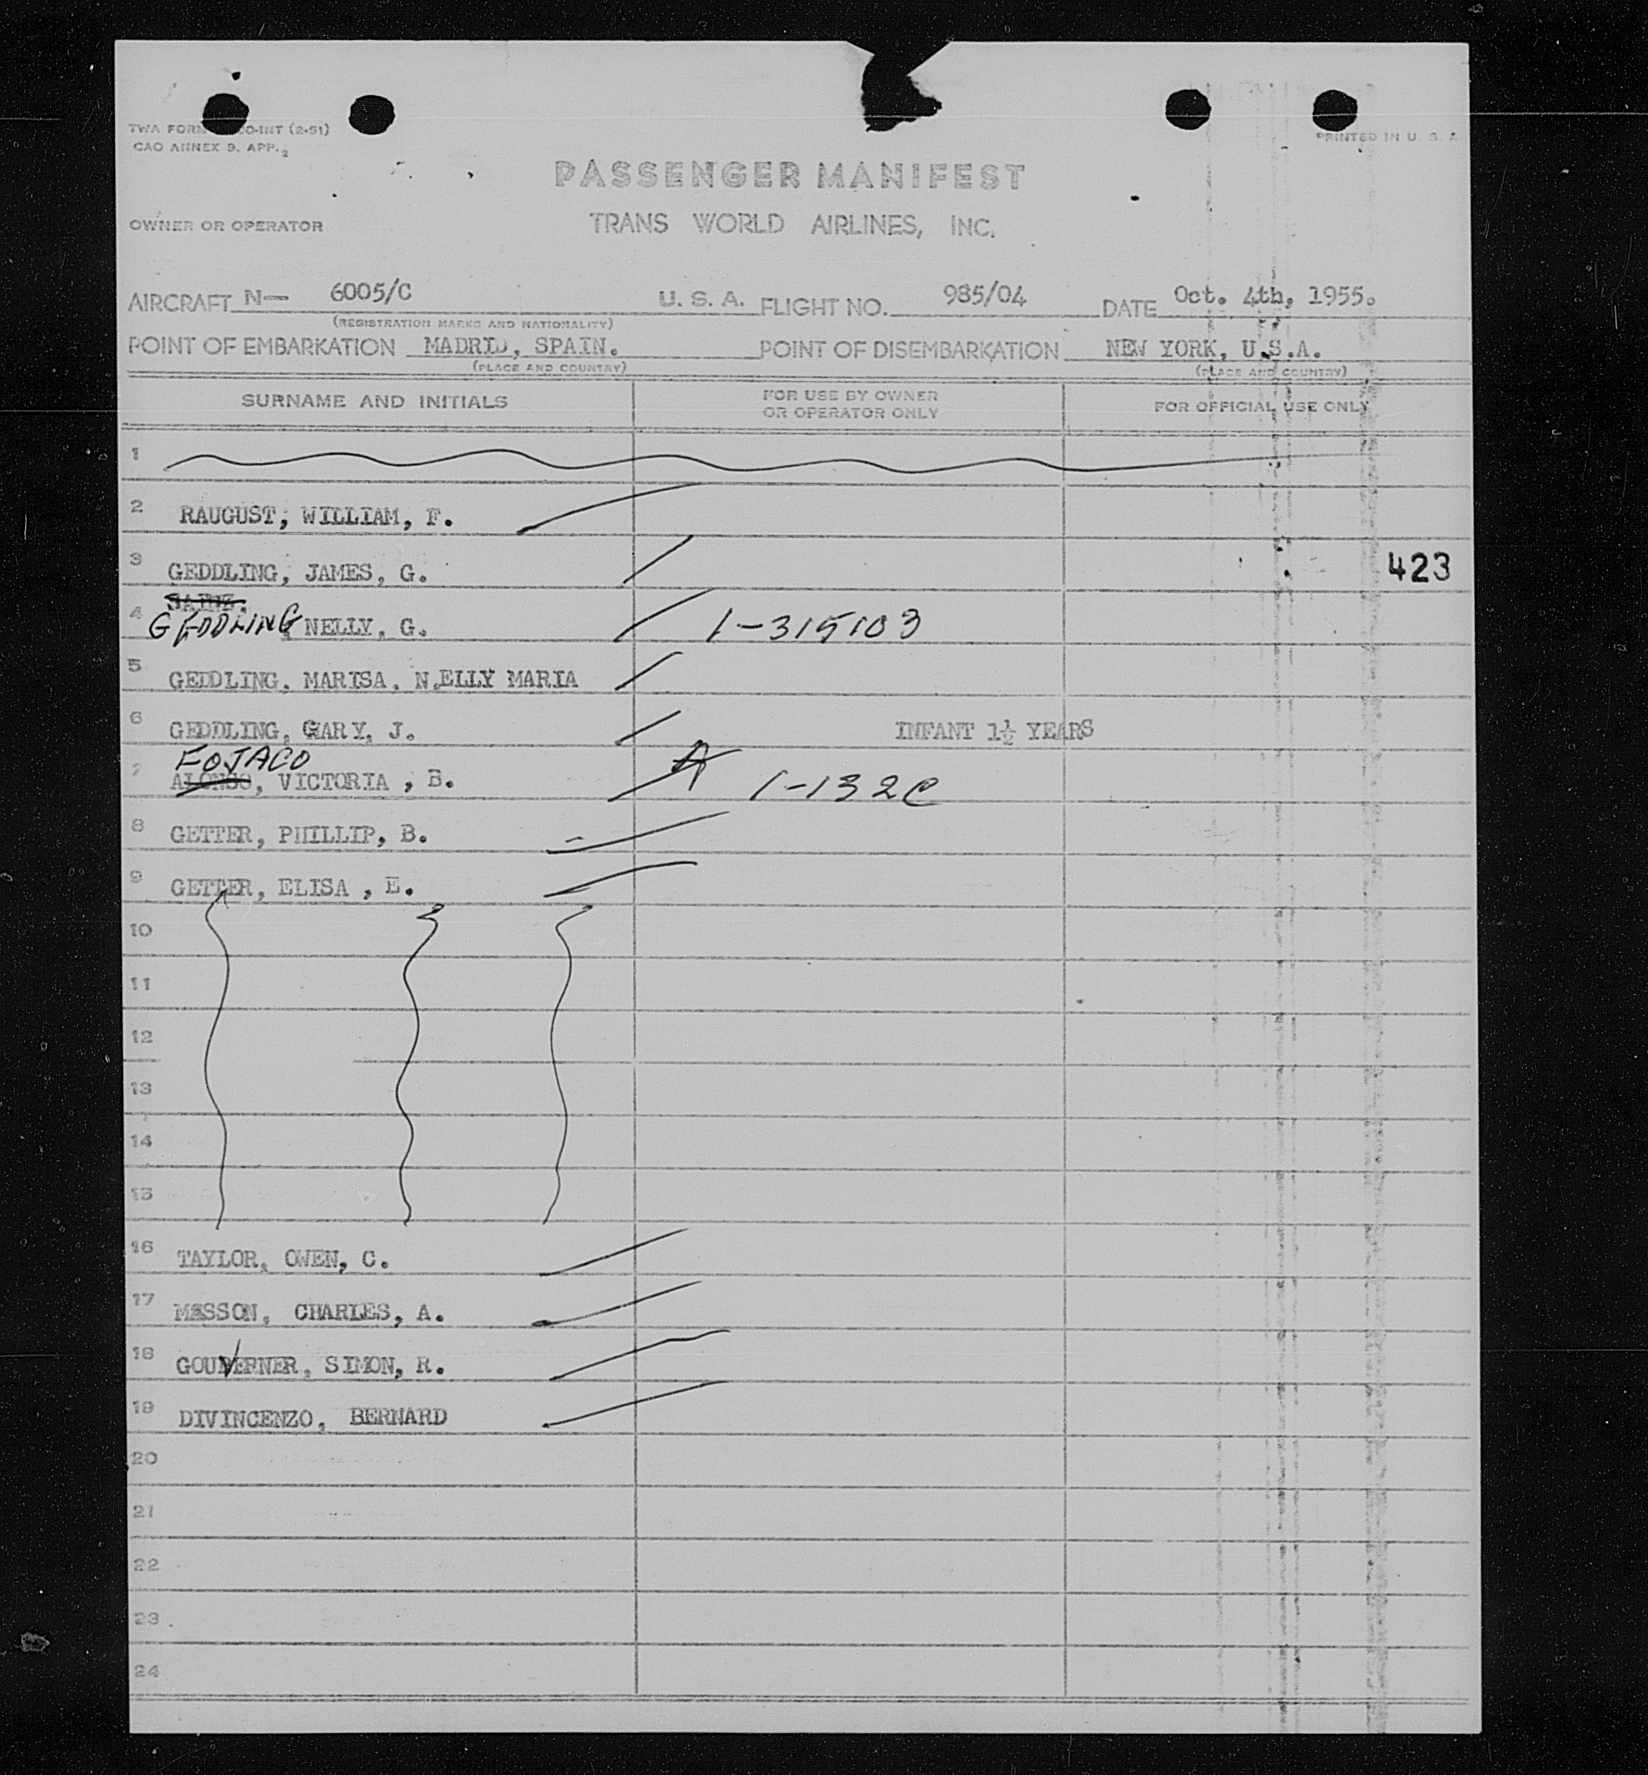 TWA FORM CO-INT (2-51)
CAO ANNEX 9. APP. 2
PRINTED IN U. S. A
PASSENGER MANIFEST
OWNER OR OPERATOR
TRANS WORLD AIRLINES, INC.
AIRCRAFT N— 6005/C U. S. A. FLIGHT NO. 985/04 DATE Oct. 4th, 1955.
(REGISTRATION MARKS AND NATIONALITY)
POINT OF EMBARKATION MADRID, SPAIN. POINT OF DISEMBARKATION NEW YORK, U.S.A.
(PLACE AND COUNTRY) (PLACE AND COUNTRY)
SURNAME AND INITIALS FOR USE BY OWNER OR OPERATOR ONLY FOR OFFICIAL USE ONLY
1
2 RAUGUST, WILLIAM, F.
3 GEDDLING, JAMES, G. 423
4 GEDDLING, NELLY, G. 1-315103
5 GEDDLING, MARISA, N.ELLY MARIA
6 GEDDLING, GARY, J. INFANT 1½ YEARS
FOJACO
7 ALONSO, VICTORIA, B. A 1-132C
8 GETTER, PHILLIP, B.
9 GETTER, ELISA, E.
10
11
12
13
14
15
16 TAYLOR, OWEN, C.
17 MASSON, CHARLES, A.
18 GOUVERNER, SIMON, R.
19 DIVINCENZO, BERNARD
20
21
22
23
24